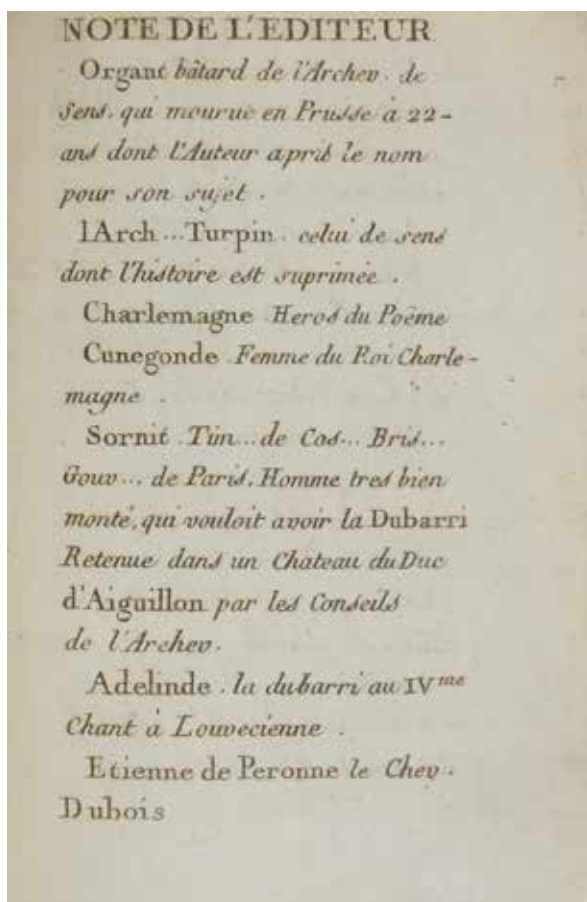 NOTE DE L'EDITEUR
Organt bâtard de l'Archev. de
sens. qui mourut en Prusse à 22-
ans dont l'Auteur apris le nom
pour son sujet.
lArch...Turpin. celui de sens
dont l'histoire est suprimée.
Charlemagne Heros du Poëme
Cunegonde. Femme du Roi Charle-
magne.
Sornit. Tim...de Cos... Bris...
Gouv... de Paris. Homme tres bien
monté, qui vouloit avoir la Dubarri
Retenue dans un Chateau du Duc
d'Aiguillon par les Conseils
de l'Archev.
Adelinde. la dubarri au IVme
Chant à Louvecienne.
Etienne de Peronne le Chev.
Dubois